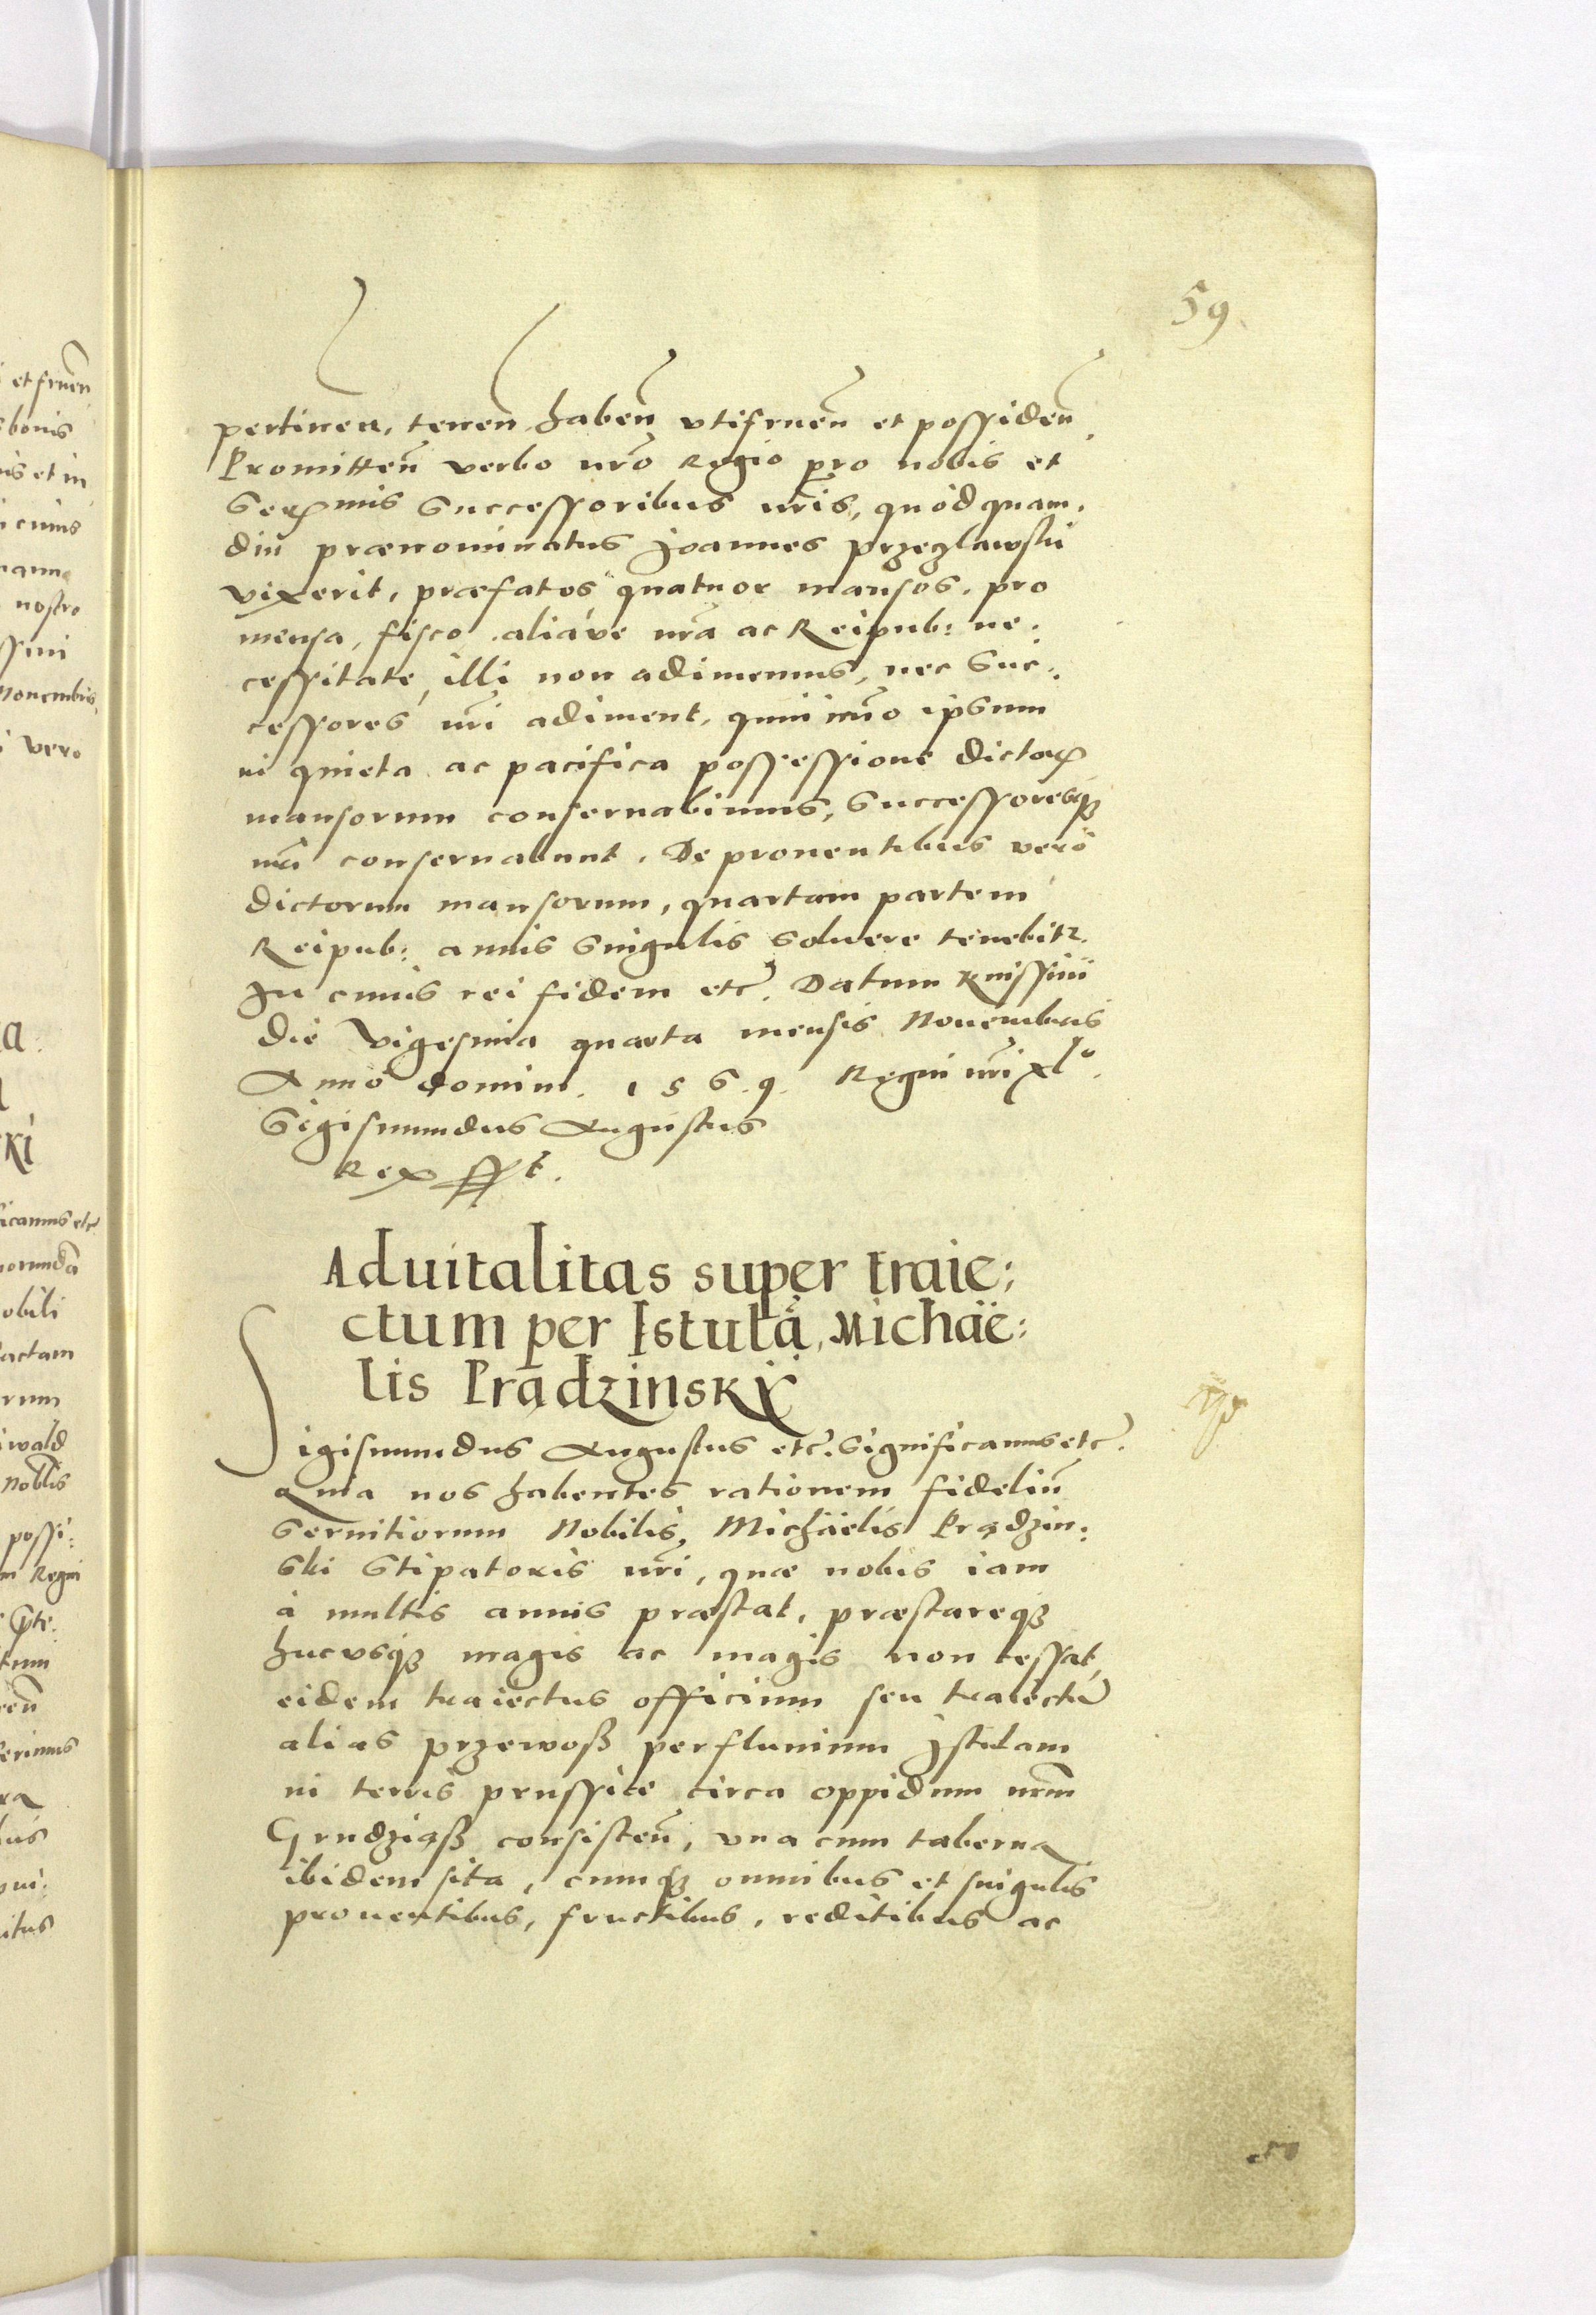 59
pertinen, tenen, haben̄ vtifruen̄ et possiden̄
Promitten̄ verbo nr̄o Regio pro nobis et
Serꝫmis Successoribus nr̄is, quòd quam,
diu prænominatus Joannes Przeczlawski
vixerit, præfatos quatuor mansos, pro
mensa, fisco, aliáve nr̄a ac Reipub: ne:
cessitate, illi non adimemus, nec Suc:
cessores nr̄i adiment, quin im̄o ipsum
in quieta ac pacifica possessione dictoꝝ
mansorum conseruabimus, Successoresqꝫ
nr̄i conseruabunt. De prouentibus verò
dictorum mansorum, quartam partem
Reipub: annis Singulis Soluere tenebitꝛ.
In cuius rei fidem etc̄. Datum Knissini
die Vigesima quarta mensis Nouembris
Anno domini. 1569. Regni nr̄i xlº.
Sigismundus Augustus
Rex sst.
Aduitalitas super traie:
ctum per Istulā, Michaë:
lis Prądzinskÿ
Sigismundus Augustus etc̄. Significamus etc̄.
Quia nos habentes rationem fideliū
Seruitiorum Nobilis, Michaëlis Prądzin:
ski Stipatoris nr̄i, quæ nobis iam
à multis annis præstat, præstareqꝫ
hucvsqꝫ magis ac magis non cessat,
eidem traiectus officium seu traiectū
alias przewoß per fluuium Jstulam
in terris prussiæ circa oppidum nr̄m
Grudziąß consisten̄, vna cum taberna
ibidem sita, cumqꝫ omnibus et singulis
prouentibus, fructibus, reditibus ac